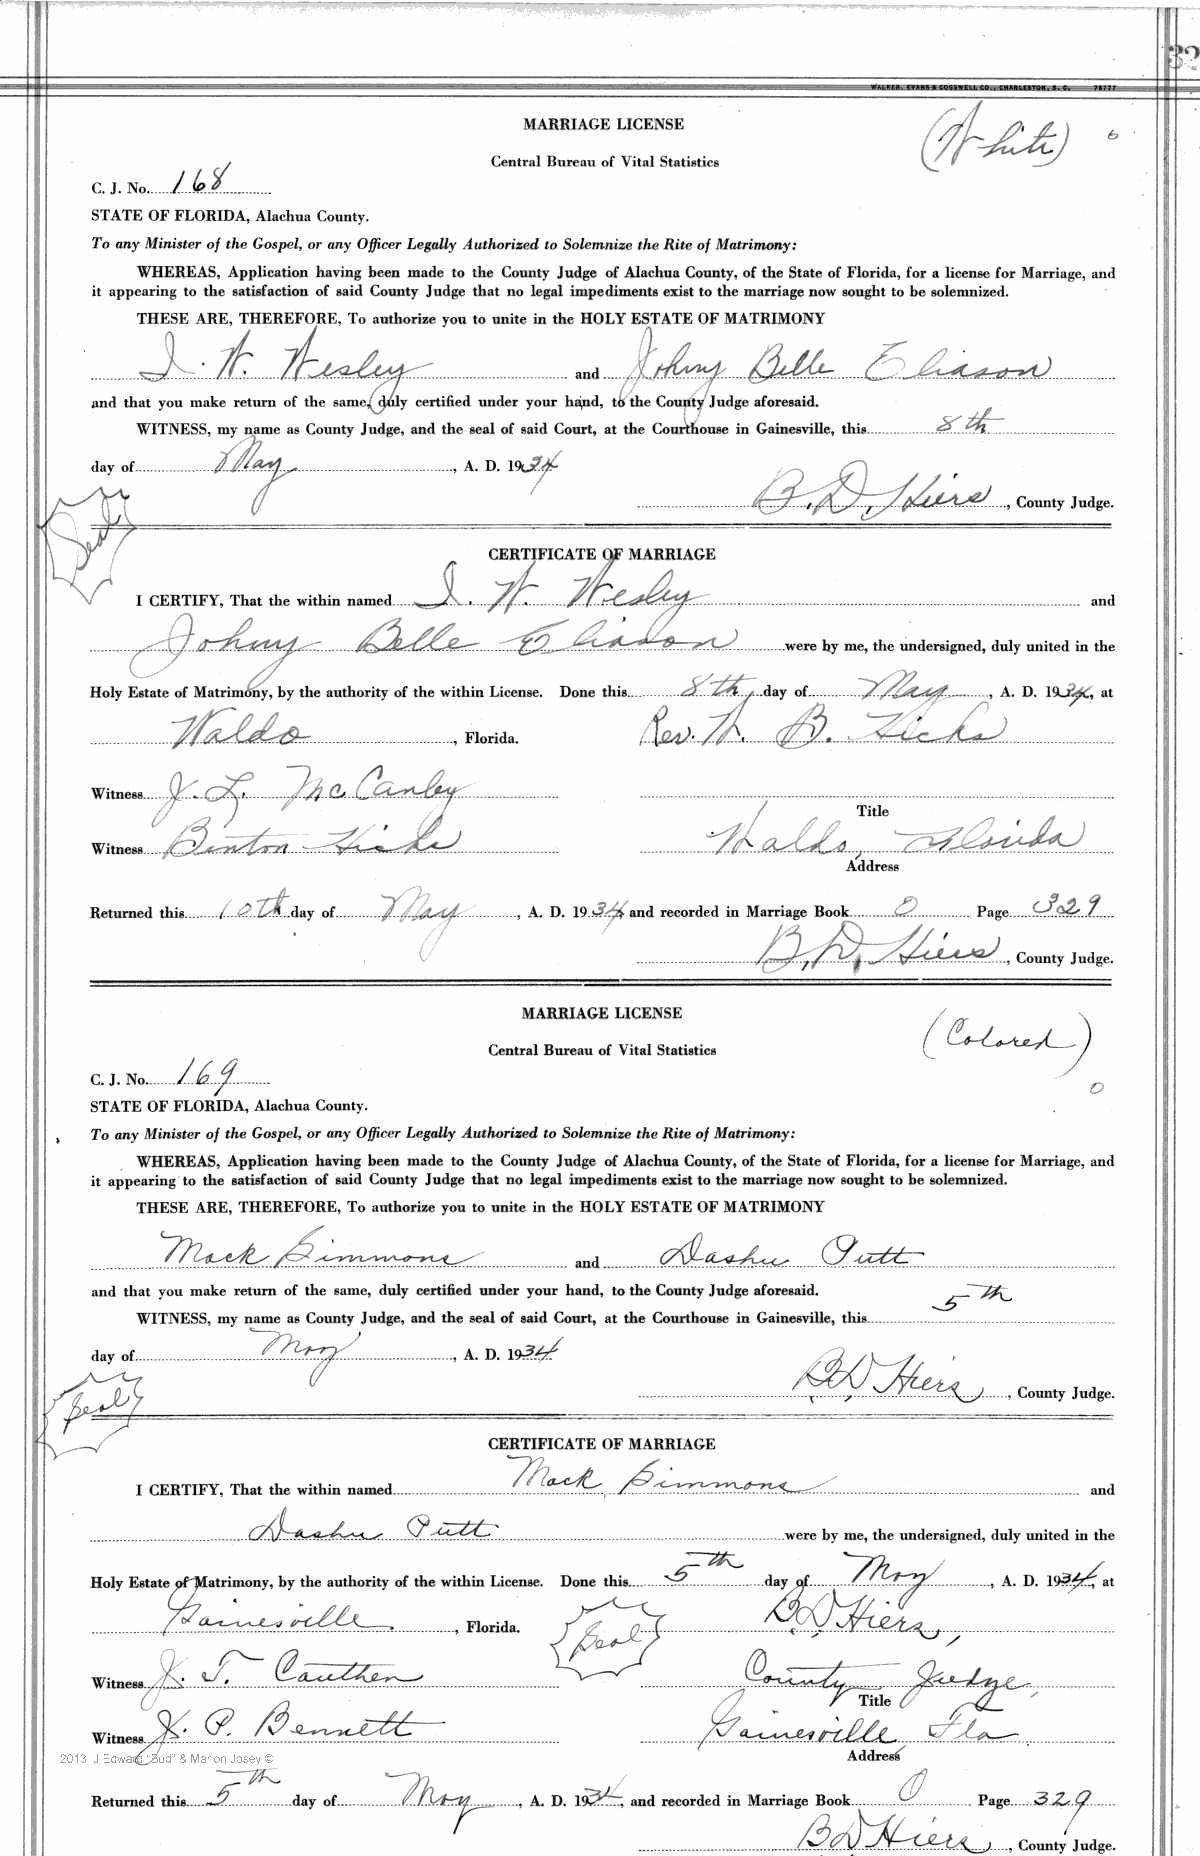 32
WALKER, EVANS & COGSWELL CO., CHARLESTON, S. C. 78777
MARRIAGE LICENSE
(White) 6
Central Bureau of Vital Statistics
C. J. No. 168
STATE OF FLORIDA, Alachua County.
To any Minister of the Gospel, or any Officer Legally Authorized to Solemnize the Rite of Matrimony:
WHEREAS, Application having been made to the County Judge of Alachua County, of the State of Florida, for a license for Marriage, and
it appearing to the satisfaction of said County Judge that no legal impediments exist to the marriage now sought to be solemnized.
THESE ARE, THEREFORE, To authorize you to unite in the HOLY ESTATE OF MATRIMONY
I. W. Wesley and Johny Belle Eliason
and that you make return of the same, duly certified under your hand, to the County Judge aforesaid.
WITNESS, my name as County Judge, and the seal of said Court, at the Courthouse in Gainesville, this 8th
day of May, A. D. 1934
B. D. Hiers, County Judge.
Seal
CERTIFICATE OF MARRIAGE
I CERTIFY, That the within named I. W. Wesley and
Johny Belle Eliason were by me, the undersigned, duly united in the
Holy Estate of Matrimony, by the authority of the within License. Done this 8th day of May, A. D. 1934, at
Waldo, Florida. Rev. M. B. Hicks
Witness J. L. McCanley
Title
Witness Binton Hicks Waldo, Florida
Address
Returned this 10th day of May, A. D. 1934 and recorded in Marriage Book O Page 329
B. D. Hiers, County Judge.
MARRIAGE LICENSE
(Colored)
Central Bureau of Vital Statistics
C. J. No. 169
0
STATE OF FLORIDA, Alachua County.
To any Minister of the Gospel, or any Officer Legally Authorized to Solemnize the Rite of Matrimony:
WHEREAS, Application having been made to the County Judge of Alachua County, of the State of Florida, for a license for Marriage, and
it appearing to the satisfaction of said County Judge that no legal impediments exist to the marriage now sought to be solemnized.
THESE ARE, THEREFORE, To authorize you to unite in the HOLY ESTATE OF MATRIMONY
Mack Simmons and Dashu Putt
and that you make return of the same, duly certified under your hand, to the County Judge aforesaid.
WITNESS, my name as County Judge, and the seal of said Court, at the Courthouse in Gainesville, this 5th
day of May, A. D. 1934
B. D. Hiers, County Judge.
Seal
CERTIFICATE OF MARRIAGE
I CERTIFY, That the within named Mack Simmons and
Dashu Putt were by me, the undersigned, duly united in the
Holy Estate of Matrimony, by the authority of the within License. Done this 5th day of May, A. D. 1934, at
Gainesville, Florida. Seal B D Hiers,
Witness J. T. Cauthen County Judge,
Title
Witness J. P. Bennett Gainesville, Fla
2013 J Edward "Bud" & Marion Josey ©
Address
Returned this 5th day of May, A. D. 1934, and recorded in Marriage Book O Page 329
B D Hiers, County Judge.